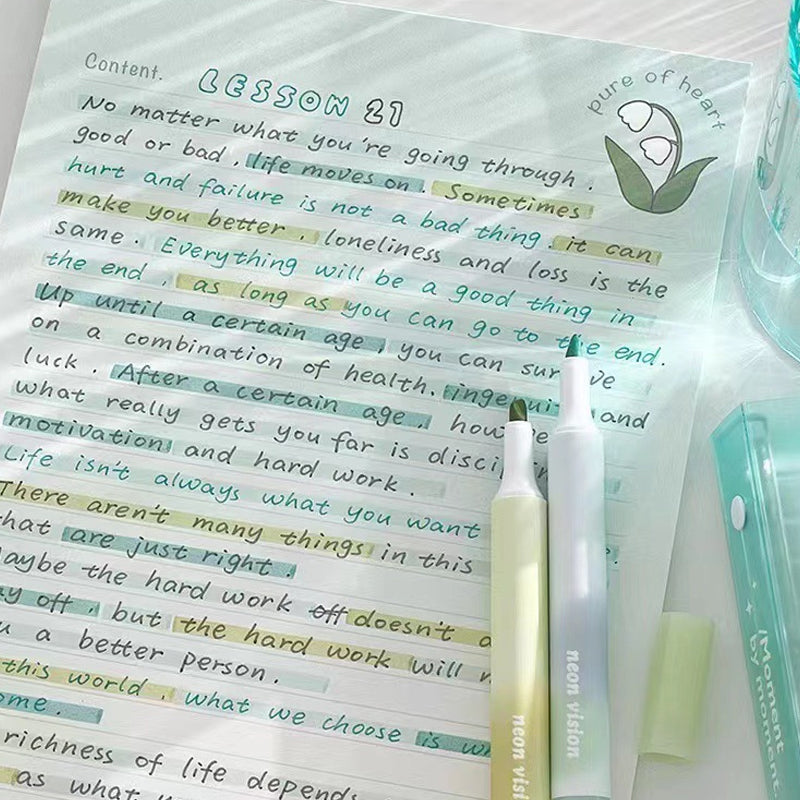 Content.
LESSON 21
pure of heart
No matter what you're going through.
good or bad, life moves on. Sometimes
hurt and failure is not a bad thing. it can
make you better. loneliness and loss is the
same. Everything will be a good thing in
the end, as long as you can go to the end.
Up until a certain age, you can sur ve
on a combination of health. ingenui and
luck. After a certain age, how
what really gets you far is discip
motivation and hard work.
Life isn't always what you want
There aren't many things in this
that are just right.
Maybe the hard work off doesn't
ay off, but the hard work will
u a better person.
this world, what we choose is
ome.
richness of life depends
as what
neon vision
neon visi
Moment
by moment